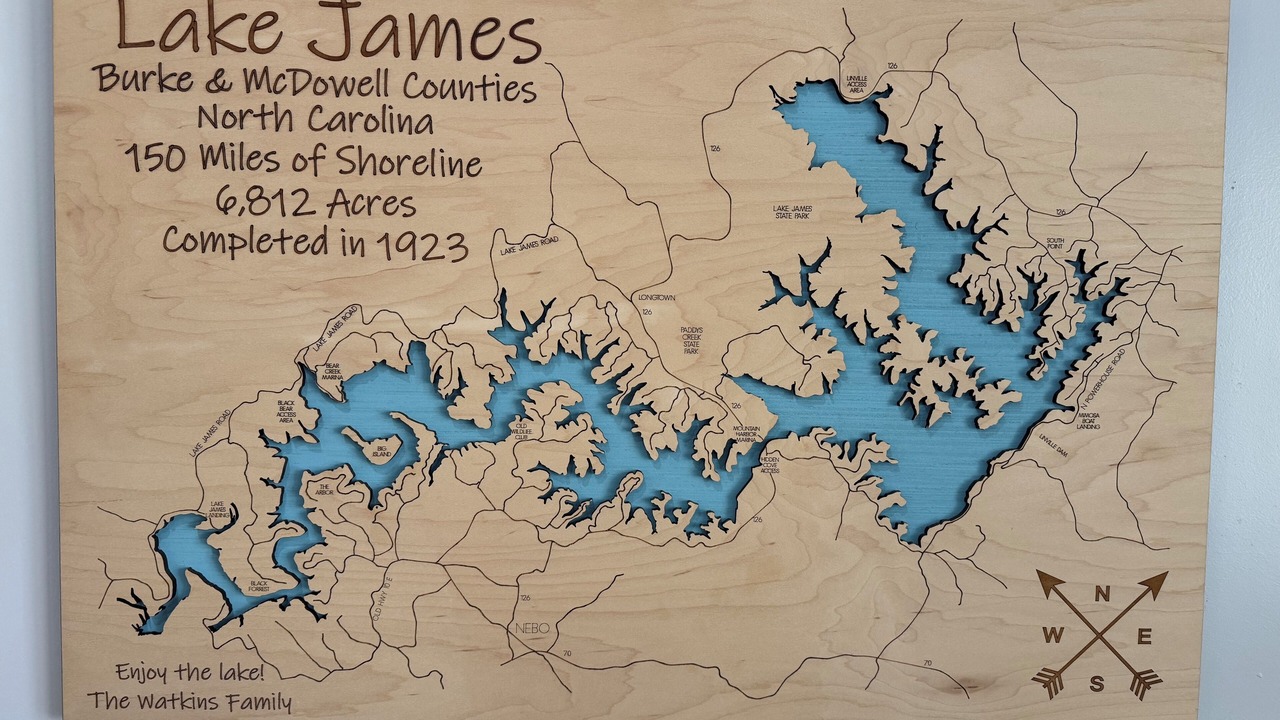 Lake James
Burke & McDowell Counties
North Carolina
150 Miles of Shoreline
6,812 Acres
Completed in 1923
LINVILLE
ACCESS
AREA
126
126
LAKE JAMES
STATE PARK
126
SOUTH
POINT
LAKE JAMES ROAD
LONGTOWN
126
PADDYS
CREEK
STATE
PARK
LAKE JAMES ROAD
BEAR
CREEK
MARINA
BLACK
BEAR
ACCESS
AREA
LAKE JAMES ROAD
BIG
ISLAND
OLD
WILDLIFE
CLUB
126
MOUNTAIN
HARBOR
MARINA
HIDDEN
COVE
ACCESS
N POWERHOUSE ROAD
MIMOSA
BOAT
LANDING
LINVILLE DAM
THE
ARBOR
LAKE
JAMES
LANDING
126
BLACK
FORREST
OLD HWY 105
126
NEBO
70
70
N
W E
S
Enjoy the lake!
The Watkins Family